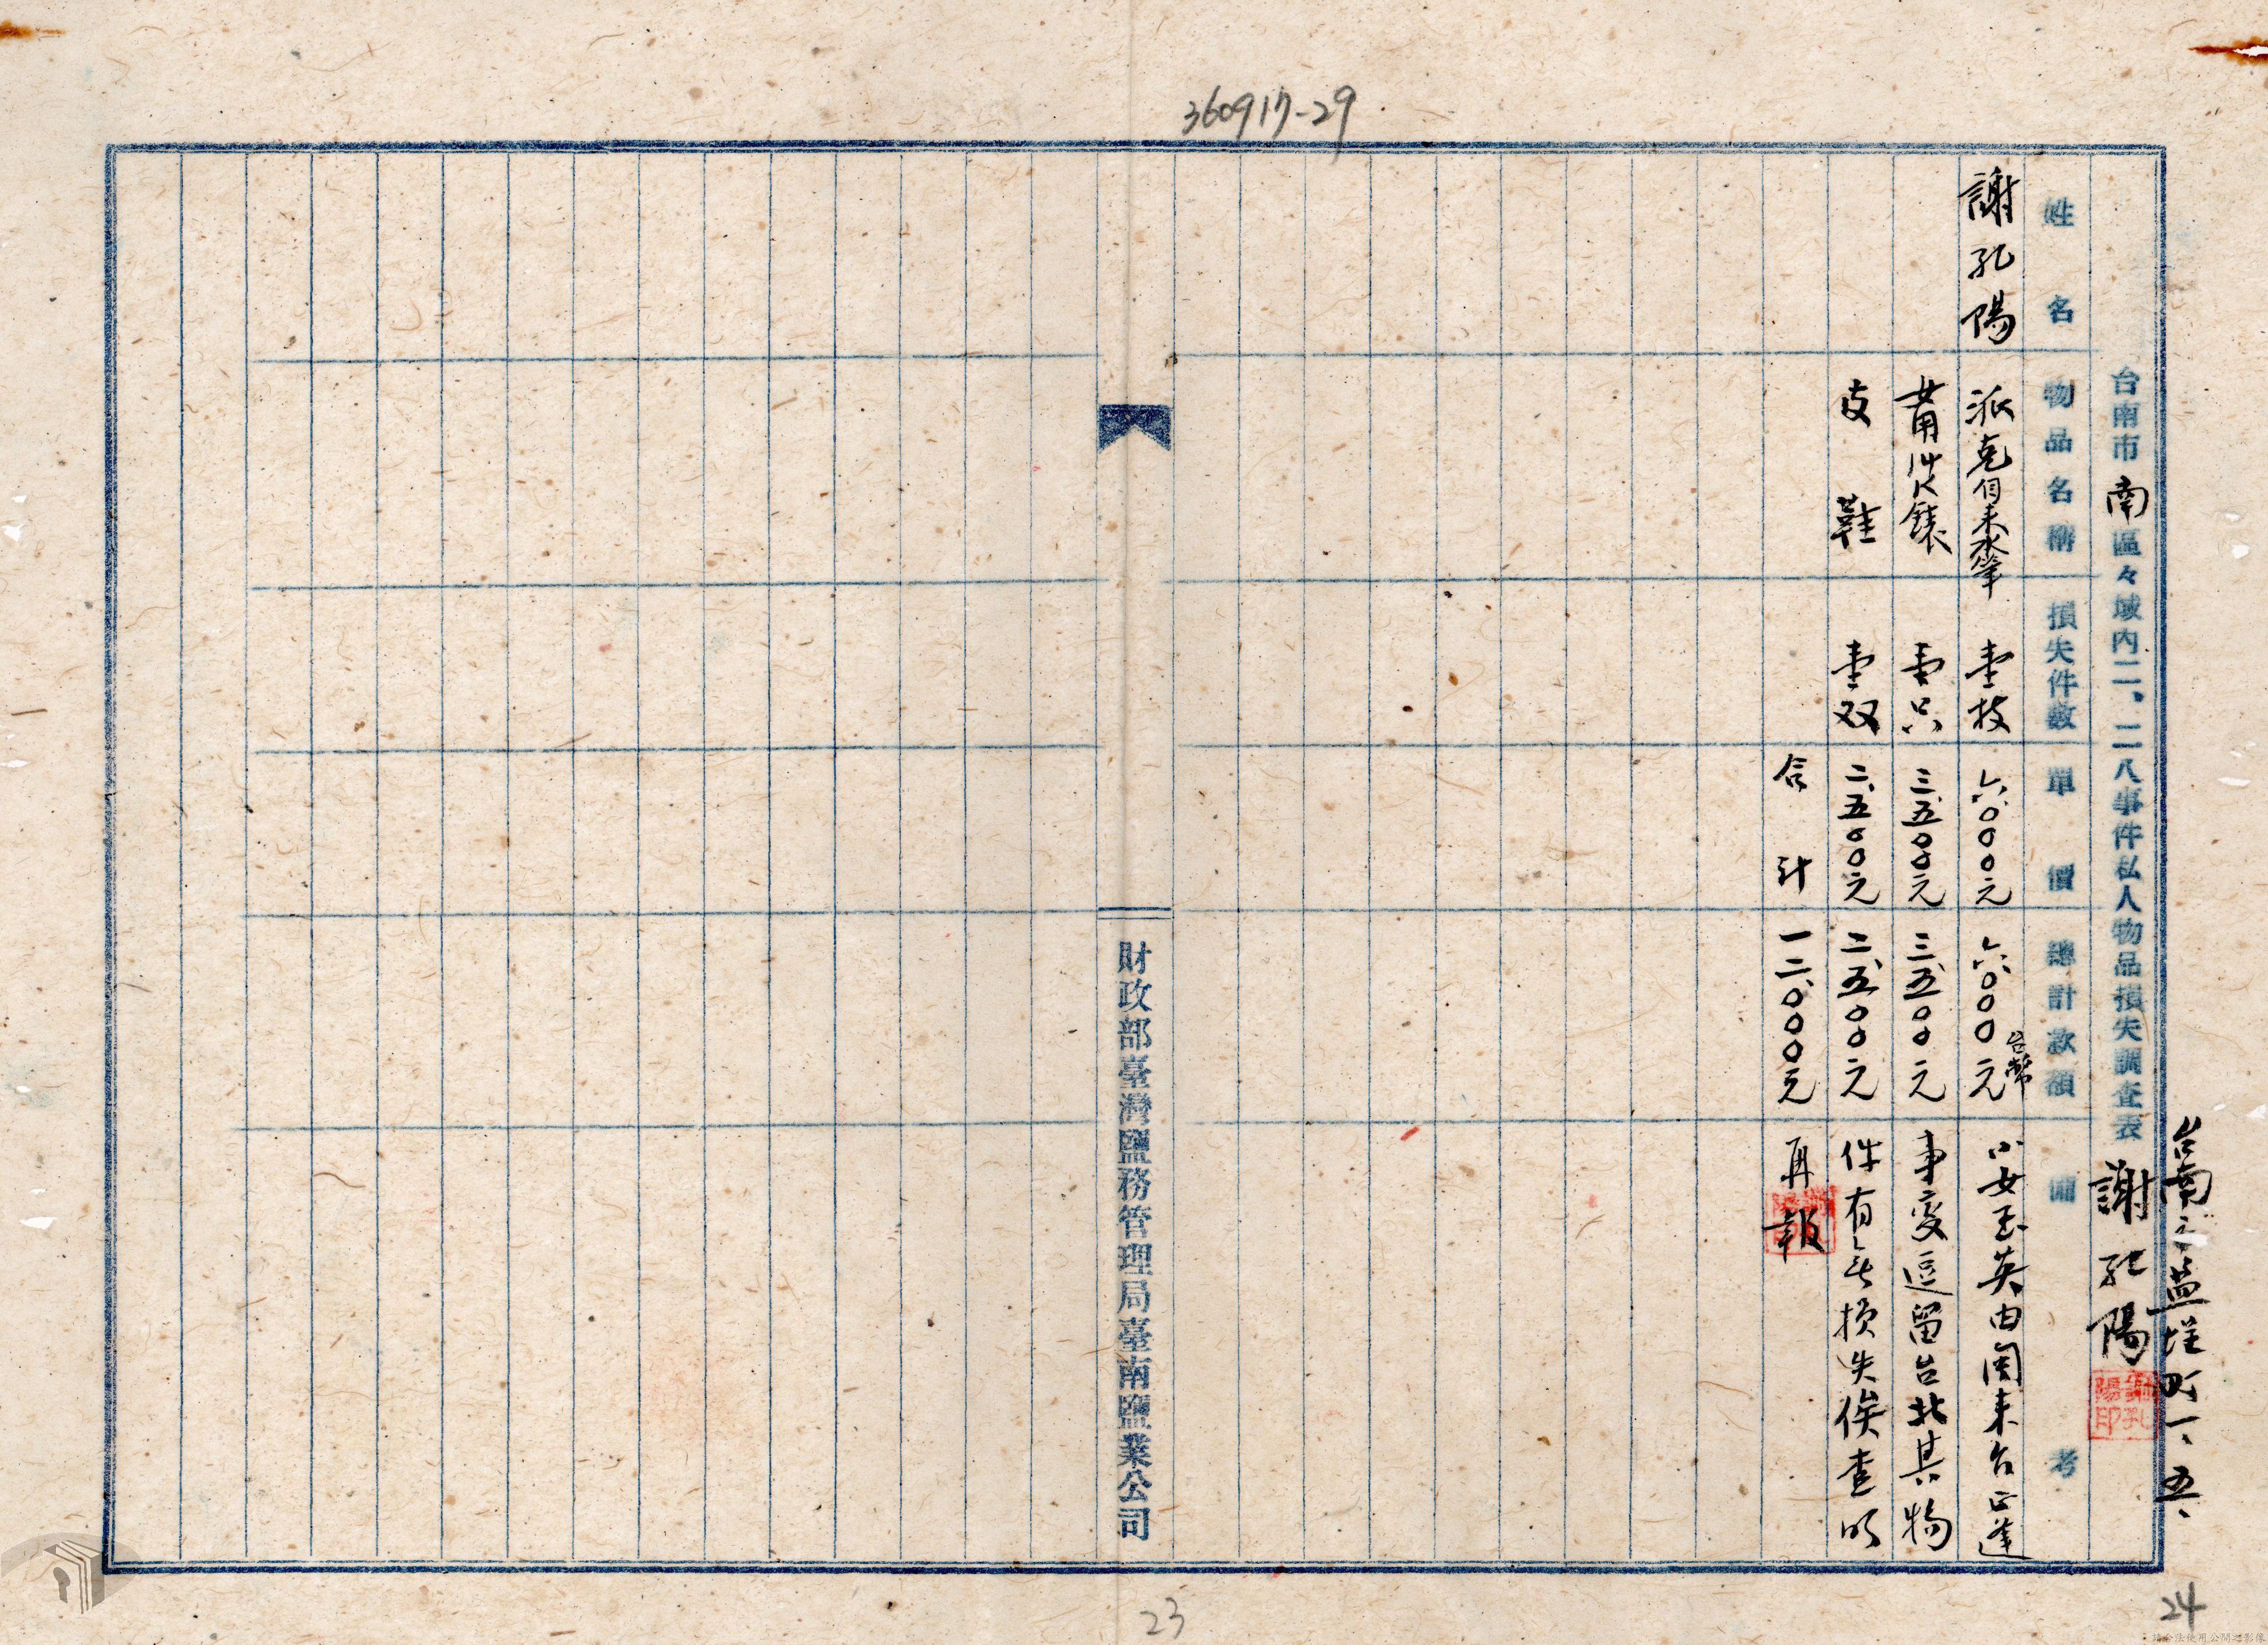 360917-29
台南市鹽埕町一、五、
台南市南區々域內二、二八事件私人物品損失調查表 謝孔陽
謝孔陽印
姓名 物品名稱 損失件數 單價 總計款額 備考
謝孔陽 派克自來水筆 壹枝 六、000元 六、000元 台幣 小女玉英由閩來台正逢
女用 壹只 三、五00元 三、五00元 事變逗留台北其物
皮鞋 壹双 二、五00元 二、五00元 件有无損失俟查明
合計 一二、000元 再報
財政部臺灣鹽務管理局臺南鹽業公司
23
24